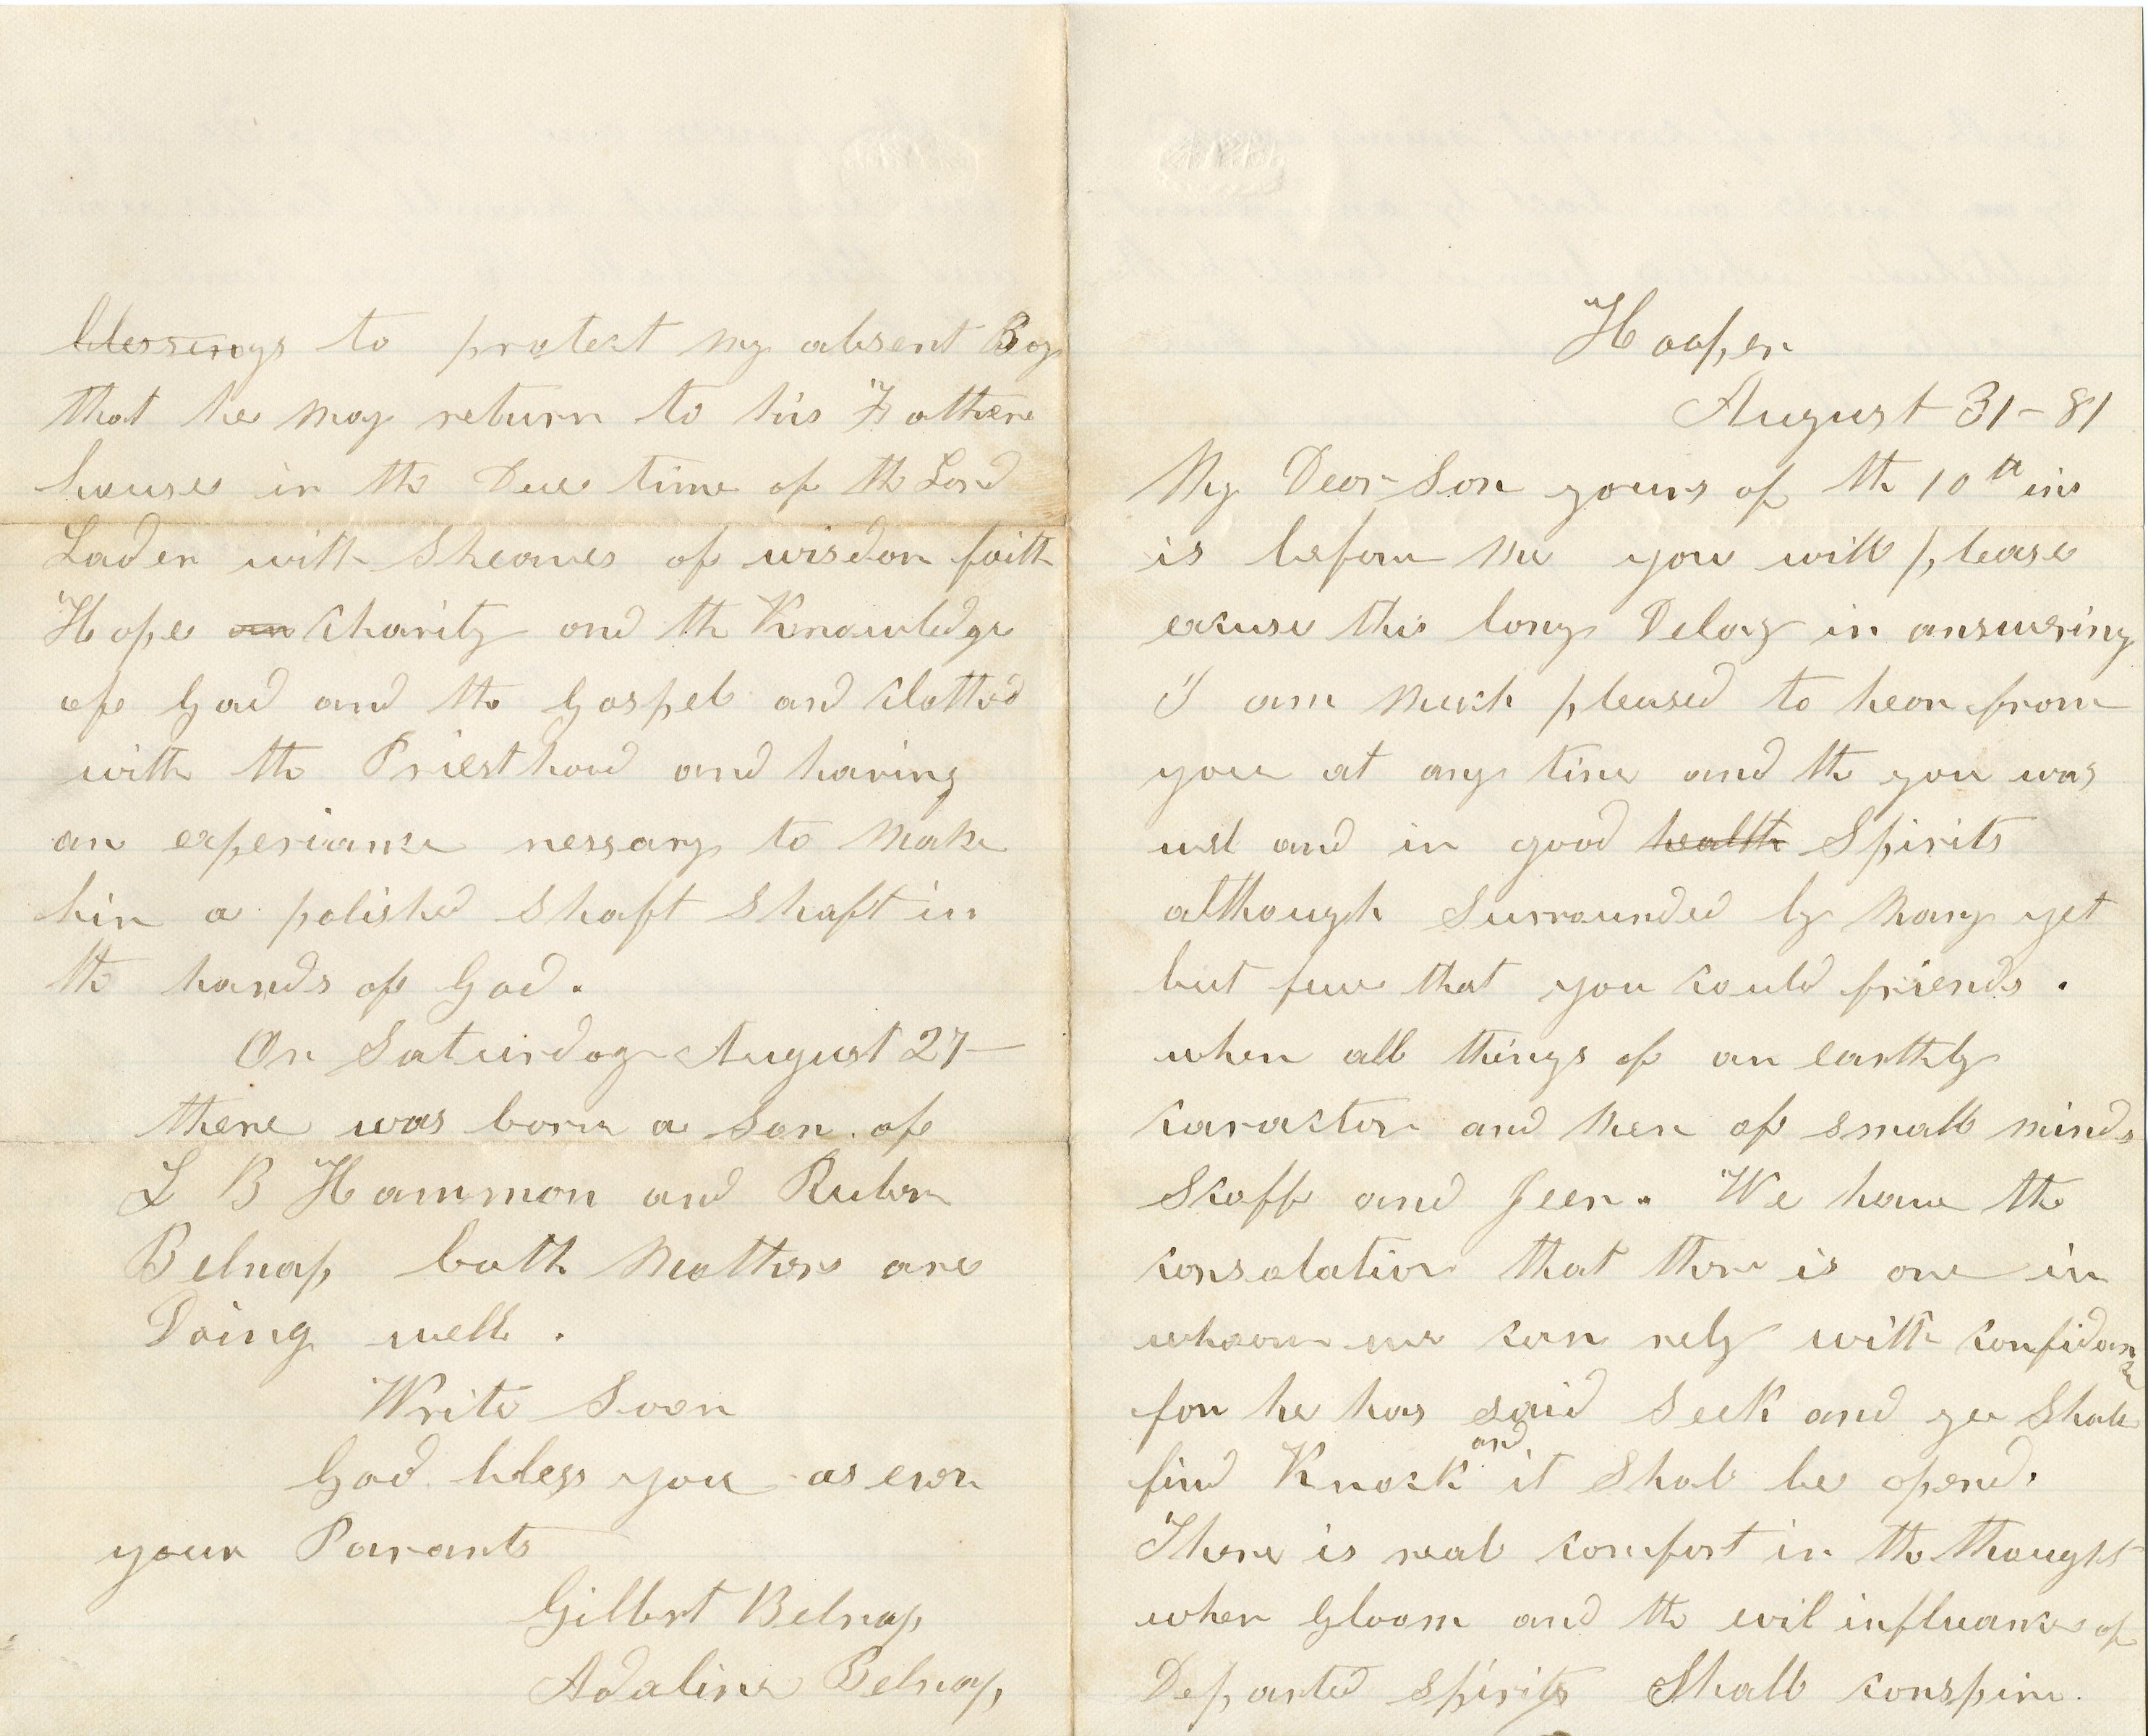 Hooper
August 31-81
My Dear Son yours of th 10th ins
is before me you will please
excuse this long Delay in answering
I am much pleased to hear from
you at any time and th you was
well and in good health Spirits
although Surrounded by many yet
but few that you could friends.
when all things of an earthly
caracter and men of small minds
Scoff and Jeer. We have the
consolation that there is one in
whoom we can rely with confidance
for he has said Seek and ye Shall
find Knock and it Shal be opend.
There is real comfort in the thought
when Gloom and the evil influance of
Departed spirits Shall conspire.
blessings to protect my absent Boy
that he may return to his Fathers
house in the Due time of the Lord
Laden with Sheaves of wisdom faith
Hope an Charity and the Knowledge
of God and the Gospel and Clothed
with the Priesthood and having
an experiance nessary to make
him a polished Shaft Shaft in
the hands of God.
On Saturday August 27-
there was born a Son of
L B Hammon and Ruben
Belnap both Mothers are
Doing well.
Write Soon
God bless you as ever
your Parants
Gilbert Belnap
Adaline Belnap